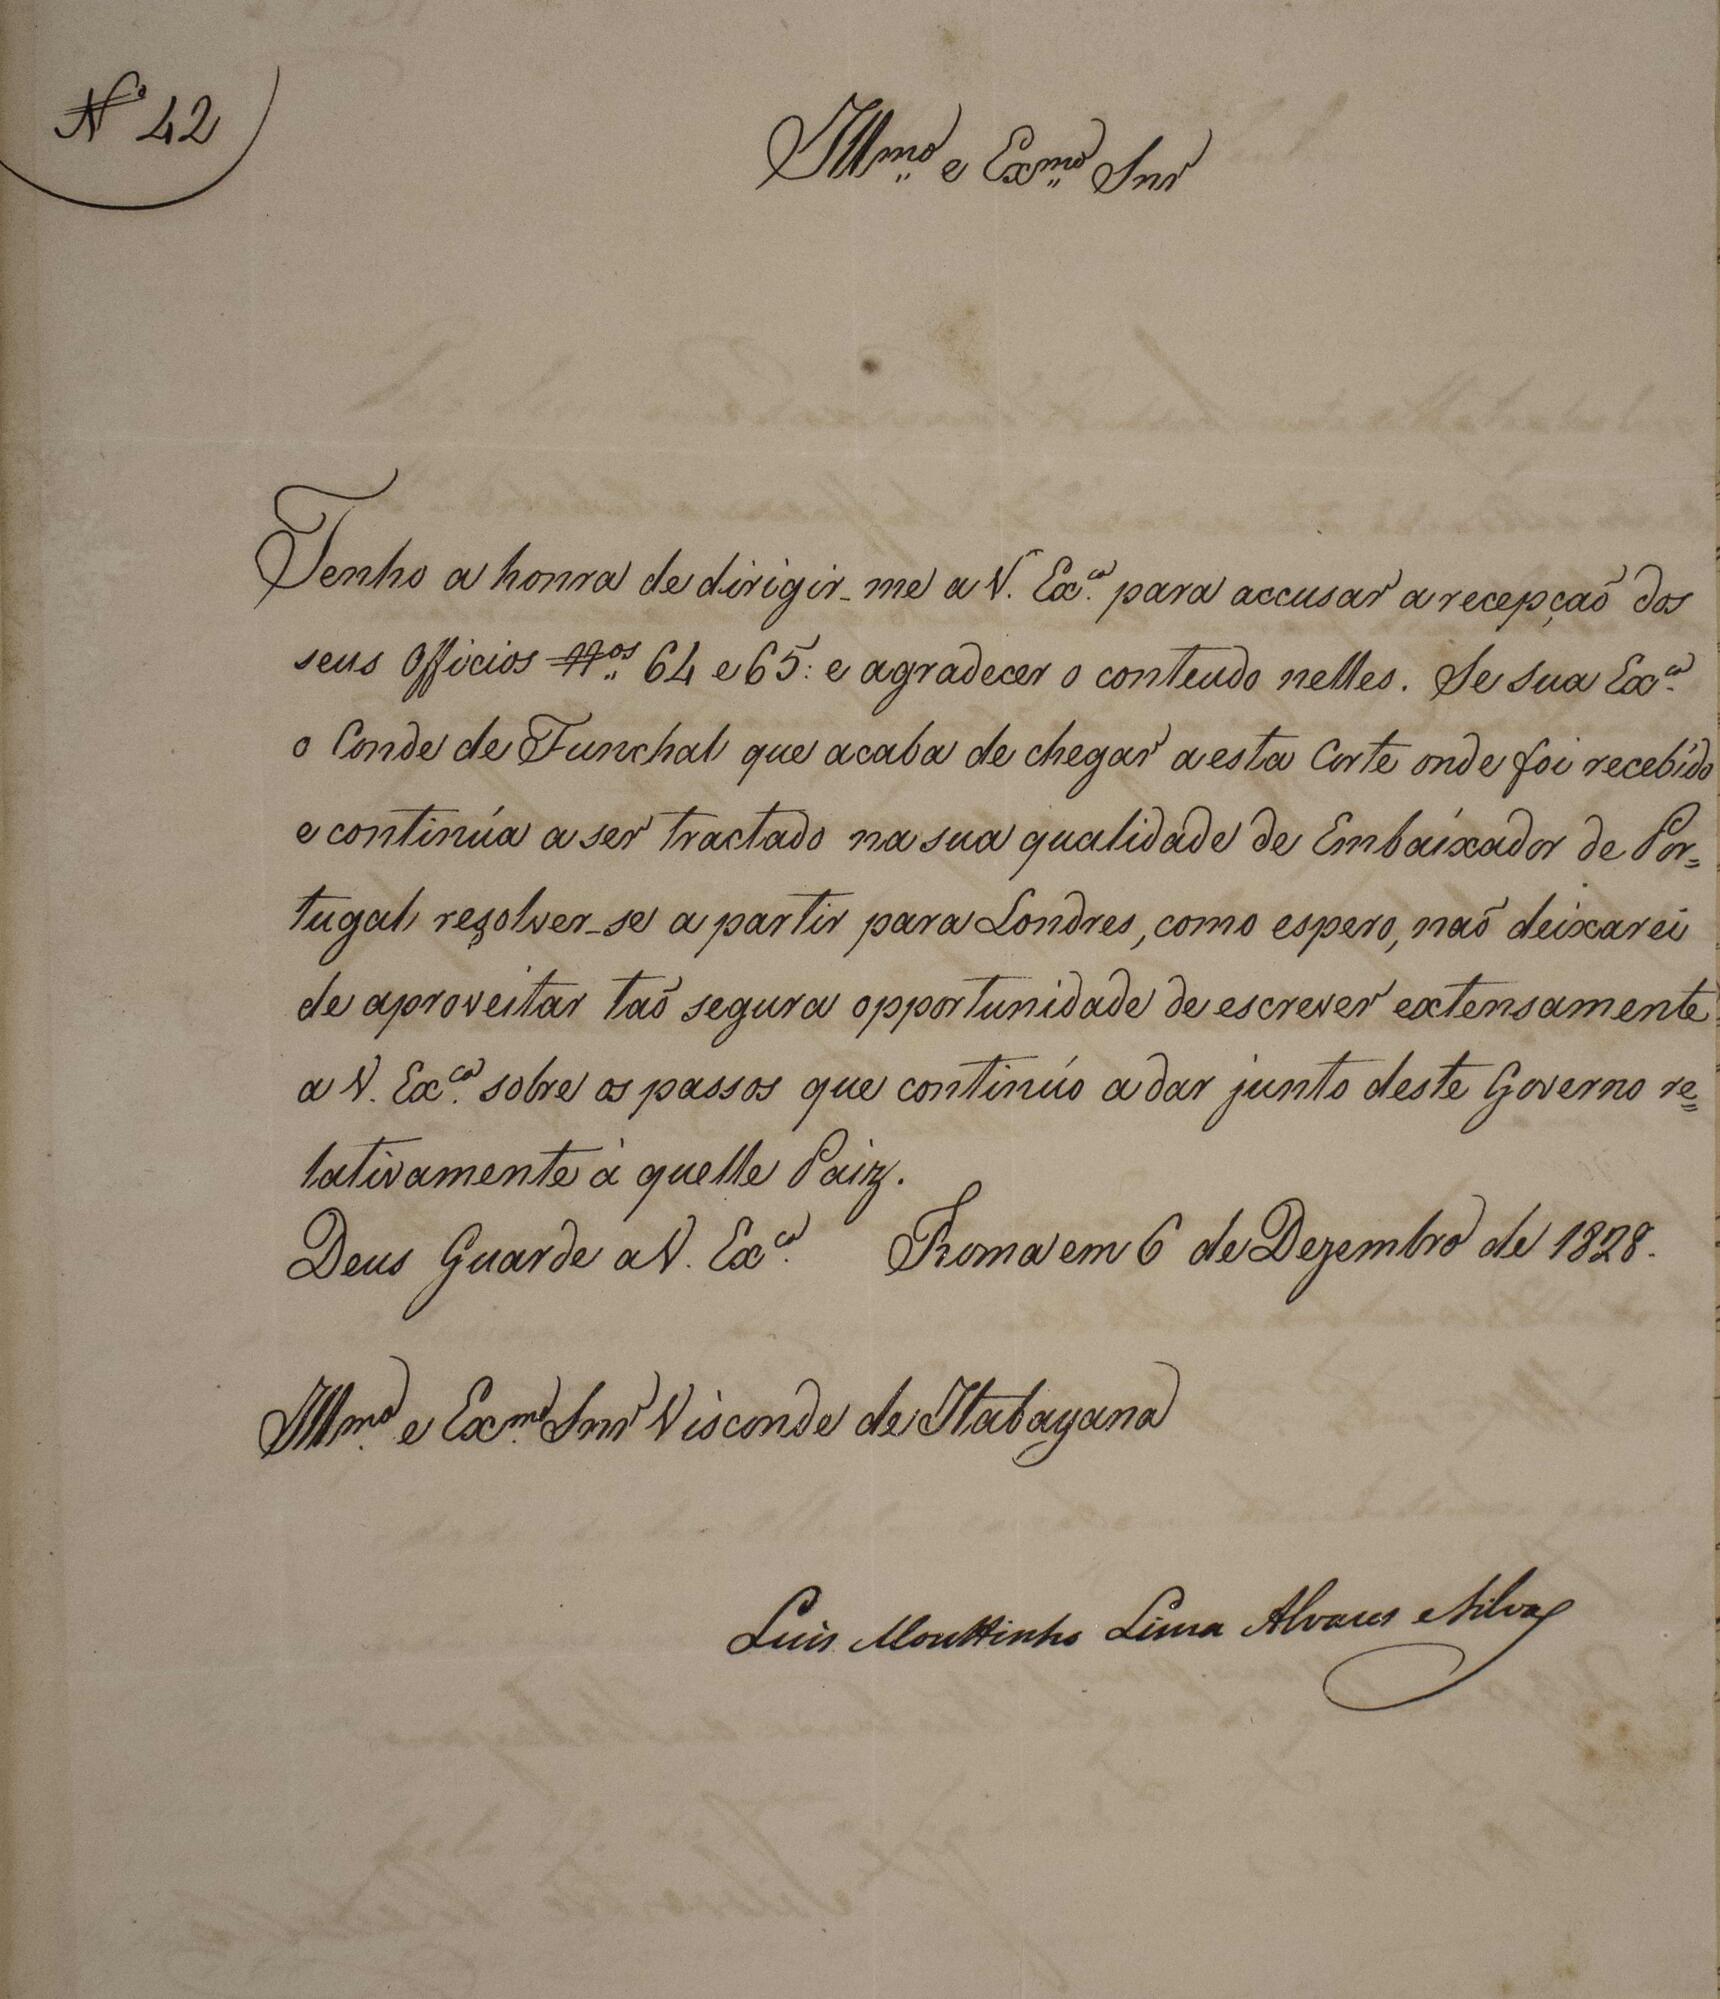 Nº 42
Illmo e Exmo Snr
Tenho a honra de dirigir-me a V. Exca. para accusar a recepçaõ dos
seus Officios Nos 64 e 65: e agradecer o conteudo nelles. Se sua Exca.
o Conde de Funchal que acaba de chegar a esta Corte onde foi recebido
e continúa a ser tractado na sua qualidade de Embaixador de Por=
tugal resolver-se a partir para Londres, como espero, naõ deixarei
de aproveitar taõ segura opportunidade de escrever extensamente
a V. Exca. sobre os passos que continúo a dar junto deste Governo re=
lativamente à quelle Paiz.
Deus Guarde a V. Exca. Roma em 6 de Dezembro de 1828.
Illmo. e Exmo. Snr Visconde de Itabayana
Luis Mouttinho Lima Alvares e Silva